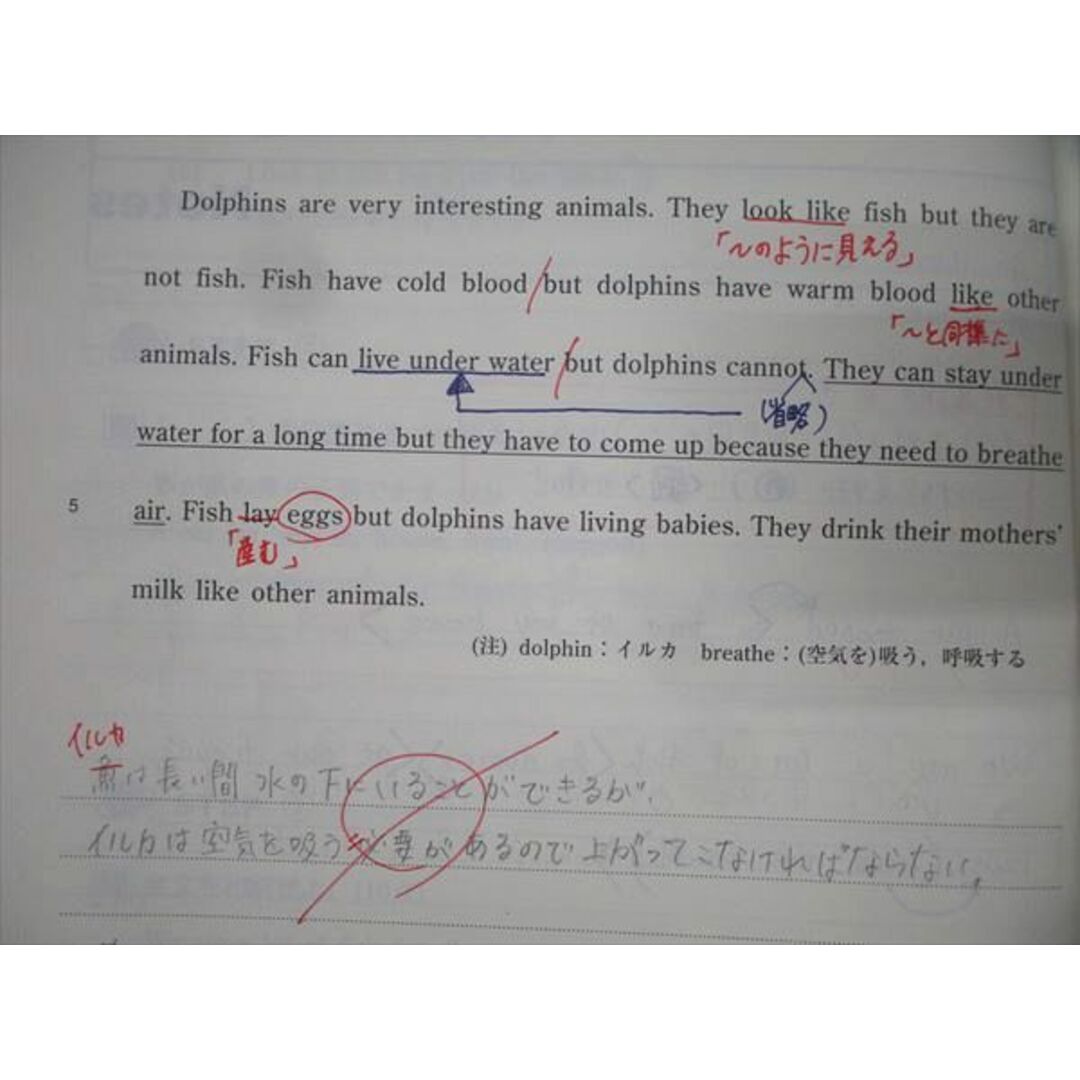 Dolphins are very interesting animals. They look like fish but they are
「〜のように見える」
not fish. Fish have cold blood / but dolphins have warm blood like other
「〜と同様に」
animals. Fish can live under water / but dolphins cannot. They can stay under
(省略)
water for a long time but they have to come up because they need to breathe
5 air. Fish lay eggs but dolphins have living babies. They drink their mothers'
「産む」
milk like other animals.
(注) dolphin：イルカ breathe：(空気を)吸う，呼吸する
イルカ
魚は長い間 水の下にいることができるが、
イルカは空気を吸う必要があるので上がってこなければならない。